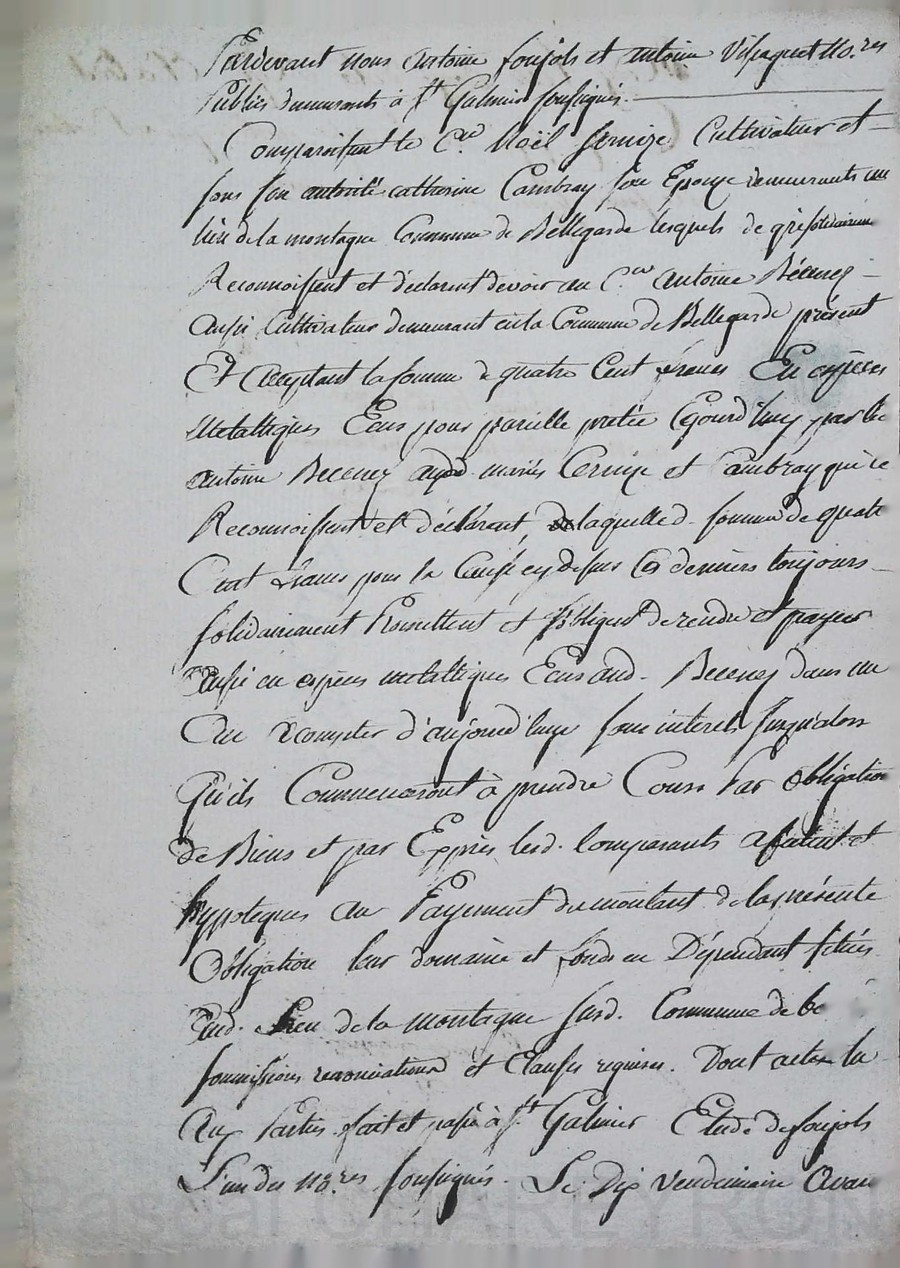 Pardevant nous Antoine soujols et antoine Vilpaquet No.res
Publics demeurants à St Galmier soussignés.
Comparoissent le C.en Noël Cultivateur et
sous son autorité catherine Cambray son Epouse demeurants au
lieu de la montagne Commune de Bellegarde lesquels de gré solidairement
Reconnoissent et declarent devoir au C.en antoine Béceney
aussi Cultivateur demeurant en la Commune de Bellegarde présent
Et acceptant la somme de quatre Cent francs En espèces
Metalliques Ecus pour pareille pretée cejourd'huy par le
antoine Beceney auxd. mariés et Cambray qui le
Reconnoissent et déclarent, de laquelle d. somme de quatre
Cent francs pour la Cause cy dessus Ces derniers toujours
solidairement Promettent et s'obligent de rendre et payer
aussi en espèces metalliques Ecus aud. Beceney dans un
An à compter d'aujourd'huy sans interets jusqu'alors
Qu'ils Commenceront à prendre Cours Par obligation
de Biens et par Exprès lesd. Comparants afectent et
hypoteques au Payement du montant de la présente
Obligation leur domaine et fonds en Dépendant situés
Aud. Lieu de la montagne susd. Commune de be
soumissions renonciations et Clauses requises. Dont acte lu
Aux Parties fait et passé à St Galmier Etude de soujols
L'un des No.res soussignés. Le Dix Vendemiaire Avan
Pascal CHAREYRON